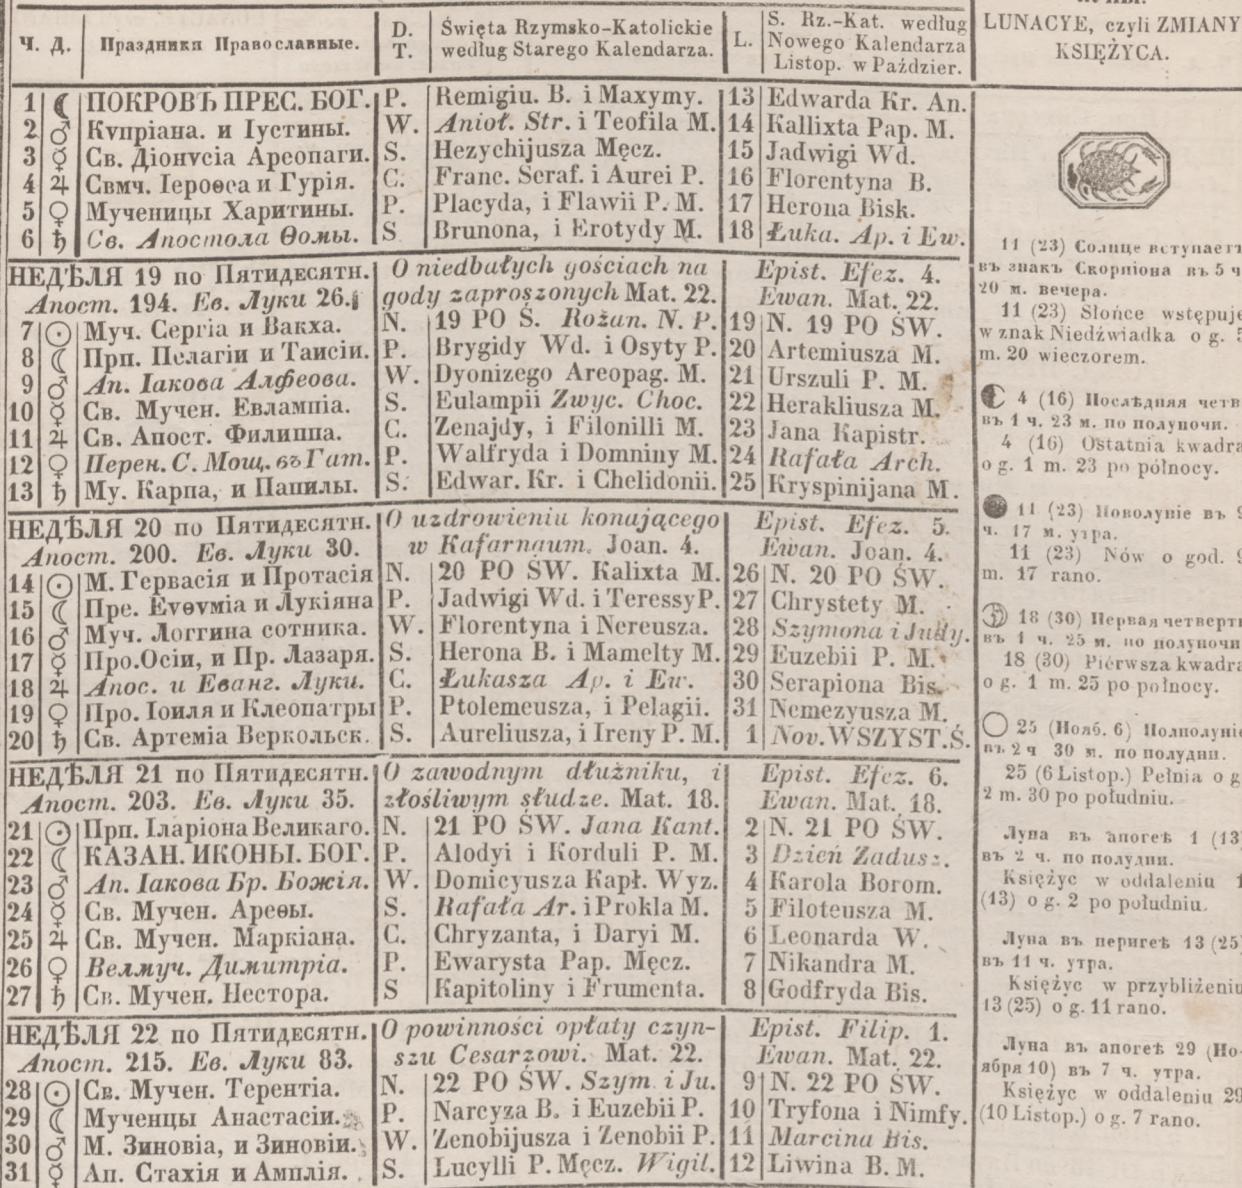 Ч. Д. Праздники Православные. D. T. Święta Rzymsko-Katolickie według Starego Kalendarza. L. S. Rz.-Kat. według Nowego Kalendarza Listop. w Paździer.
1 ☾ ПОКРОВЪ ПРЕС. БОГ. P. Remigiu. B. i Maxymy. 13 Edwarda Kr. An.
2 ♂ Кѵпріана. и Іустины. W. Anioł. Str. i Teofila M. 14 Kallixta Pap. M.
3 ☿ Св. Діонѵсіа Ареопаги. S. Hezychijusza Męcz. 15 Jadwigi Wd.
4 ♃ Свмч. Іероѳеа и Гурія. C. Franc. Seraf. i Aurei P. 16 Florentyna B.
5 ♀ Мученицы Харитины. P. Placyda, i Flawii P. M. 17 Herona Bisk.
6 ♄ Св. Апостола Ѳомы. S Brunona, i Erotydy M. 18 Łuka. Ap. i Ew.
НЕДѢЛЯ 19 по Пятидесятн. O niedbałych gościach na Epist. Efez. 4.
Апост. 194. Ев. Луки 26. gody zaproszonych Mat. 22. Ewan. Mat. 22.
7 ☉ Муч. Сергіа и Вакха. N. 19 PO Ś. Rożan. N. P. 19 N. 19 PO ŚW.
8 ☾ Прп. Пелагіи и Таисіи. P. Brygidy Wd. i Osyty P. 20 Artemiusza M.
9 ♂ Ап. Іакова Алфеова. W. Dyonizego Areopag. M. 21 Urszuli P. M.
10 ☿ Св. Мучен. Евлампіа. S. Eulampii Zwyc. Choc. 22 Herakliusza M.
11 ♃ Св. Апост. Филиппа. C. Zenajdy, i Filonilli M. 23 Jana Kapistr.
12 ♀ Перен. С. Мощ. въ Гат. P. Walfryda i Domniny M. 24 Rafała Arch.
13 ♄ Му. Карпа, и Папилы. S. Edwar. Kr. i Chelidonii. 25 Kryspinijana M.
НЕДѢЛЯ 20 по Пятидесятн. O uzdrowieniu konającego Epist. Efez. 5.
Апост. 200. Ев. Луки 30. w Kafarnaum. Joan. 4. Ewan. Joan. 4.
14 ☉ М. Гервасія и Протасія N. 20 PO ŚW. Kalixta M. 26 N. 20 PO ŚW.
15 ☾ Пре. Еѵѳѵміа и Лукіяна P. Jadwigi Wd. i Teressy P. 27 Chrystety M.
16 ♂ Муч. Логгина сотника. W. Florentyna i Nereusza. 28 Szymona i Judy.
17 ☿ Про.Осіи, и Пр. Лазаря. S. Herona B. i Mamelty M. 29 Euzebii P. M.
18 ♃ Апос. и Еванг. Луки. C. Łukasza Ap. i Ew. 30 Serapiona Bis.
19 ♀ Про. Іоиля и Клеопатры P. Ptolemeusza, i Pelagii. 31 Nemezyusza M.
20 ♄ Св. Артеміа Веркольск. S. Aureliusza, i Ireny P. M. 1 Nov. WSZYST.Ś.
НЕДѢЛЯ 21 по Пятидесятн. O zawodnym dłużniku, i Epist. Efez. 6.
Апост. 203. Ев. Луки 35. złośliwym słudze. Mat. 18. Ewan. Mat. 18.
21 ☉ Прп. Іларіона Великаго. N. 21 PO ŚW. Jana Kant. 2 N. 21 PO ŚW.
22 ☾ КАЗАН. ИКОНЫ. БОГ. P. Alodyi i Korduli P. M. 3 Dzień Zadusz.
23 ♂ Ап. Іакова Бр. Божія. W. Domicyusza Kapł. Wyz. 4 Karola Borom.
24 ☿ Св. Мучен. Ареѳы. S. Rafała Ar. i Prokla M. 5 Filoteusza M.
25 ♃ Св. Мучен. Маркіана. C. Chryzanta, i Daryi M. 6 Leonarda W.
26 ♀ Велмуч. Димитріа. P. Ewarysta Pap. Męcz. 7 Nikandra M.
27 ♄ Св. Мучен. Нестора. S Kapitoliny i Frumenta. 8 Godfryda Bis.
НЕДѢЛЯ 22 по Пятидесятн. O powinności opłaty czyn- Epist. Filip. 1.
Апост. 215. Ев. Луки 83. szu Cesarzowi. Mat. 22. Ewan. Mat. 22.
28 ☉ Св. Мучен. Терентіа. N. 22 PO ŚW. Szym. i Ju. 9 N. 22 PO ŚW.
29 ☾ Мученцы Анастасіи. P. Narcyza B. i Euzebii P. 10 Tryfona i Nimfy.
30 ♂ М. Зиновіа, и Зиновіи. W. Zenobijusza i Zenobii P. 11 Marcina Bis.
31 ☿ Ап. Стахія и Амплія. S. Lucylli P. Męcz. Wigil. 12 Liwina B. M.
LUNACYE, czyli ZMIANY
KSIĘŻYCA.
11 (23) Солнце вступаетъ
въ знакъ Скорпіона въ 5 ч
20 м. вечера.
11 (23) Słońce wstępuje
w znak Niedźwiadka o g. 5
m. 20 wieczorem.
4 (16) Послѣдняя четв
въ 1 ч. 23 м. по полуночи.
4 (16) Ostatnia kwadra
o g. 1 m. 23 po północy.
11 (23) Новолуніе въ 9
ч. 17 м. утра.
11 (23) Nów o god. 9
m. 17 rano.
18 (30) Первая четверть
въ 1 ч. 25 м. по полуночи
18 (30) Pierwsza kwadra
o g. 1 m. 25 po północy.
25 (Нояб. 6) Полнолуніе
въ 2 ч 30 м. по полудни.
25 (6 Listop.) Pełnia o g
2 m. 30 po południu.
Луна въ апогеѣ 1 (13)
въ 2 ч. по полудни.
Księżyc w oddaleniu 1
(13) o g. 2 po południu.
Луна въ перигеѣ 13 (25)
въ 11 ч. утра.
Księżyc w przybliżeniu
13 (25) o g. 11 rano.
Луна въ апогеѣ 29 (Но-
ября 10) въ 7 ч. утра.
Księżyc w oddaleniu 29
(10 Listop.) o g. 7 rano.